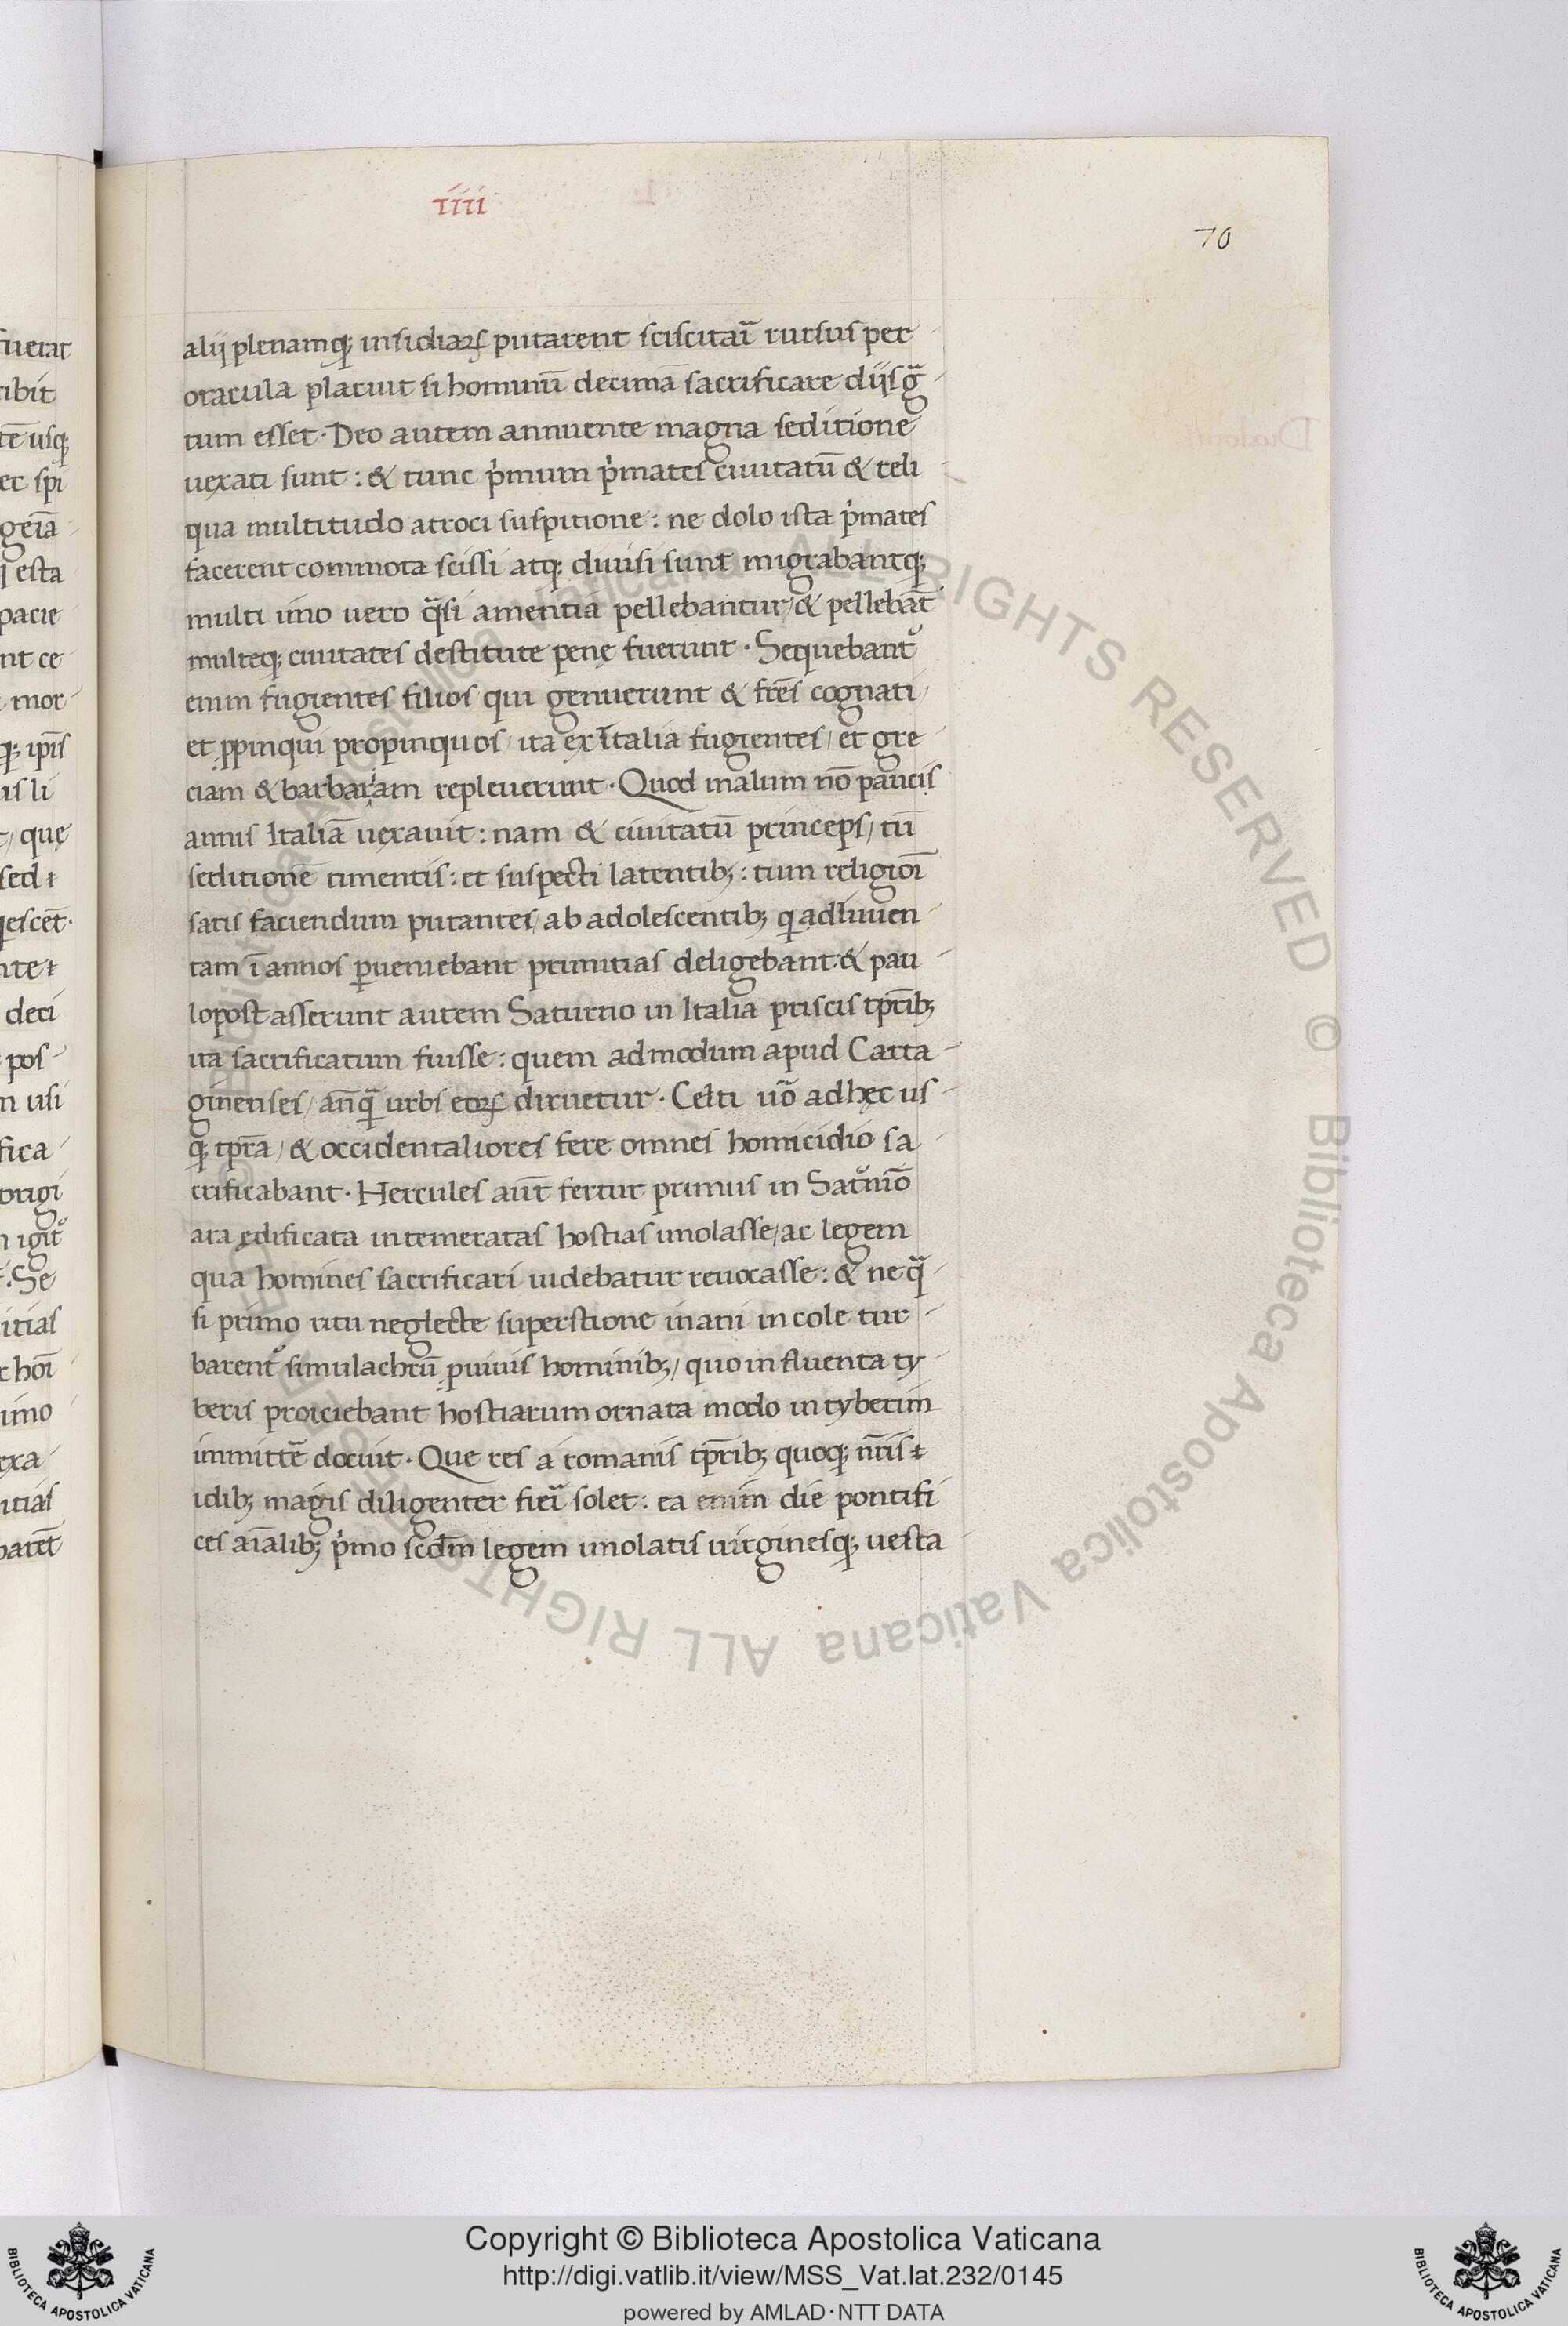 IIII
70
alij plenamq; insidiaꝝ putarent sciscitaı̄ rursus per
oracula placuit si hominū decimā sacrificare dijs g̃
tum esset. Deo autem annuente magna seditione
uexati sunt: & tunc p̓mum p̓mates ciuitatū & reli
qua multitudo atroci suspitione: ne dolo ista p̓mates
facerent commota scissi atq; diuisi sunt migrabantq;
multi imo uero q̃si amentia pellebantur/ & pellebāt
multeq; ciuitates destitute penę fuerunt. Sequebant᷑
enim fugientes filios qui genuerunt & frēs cognati/
et ꝓpinqui propinquos/ ita ex Italia fugientes/ et gre
ciam & barbariam repleuerunt. Quod malum nō paucis
annis Italiā uexauit: nam & ciuitatū princeps/ tū
seditionē timentis: et suspecti latentib;: tum religioı̄
satis faciendum putantes/ ab adolescentib; qi ad iuuen
tam ı̄ annos ꝑueniebant primitias deligebant. & pau
lopost asserunt autem Saturno in Italia priscis tp̄rib;
ita sacrificatum fuisse: quem admodum apud Carta
ginenses/ an̄q̃ urbs eoꝝ dirueretur. Celti uō adhęc us
q; tp̄ra/ & occidentaliores fere omnes homicidio sa
crificabant. Hercules aūt fertur primus in Sat᷑nıō
ara ędificata intemeratas hostias imolasse/ ac legem
qua homines sacrificari uidebatur reuocasse: & neq̃
si primo ritu neglecte superstione inani incole tur
barent᷑ simulachrū ꝑuiuis hominib;/ quo in fluenta ty
beris proiciebant hostiarum ornata modo in tyberim
immittē docuit. Que res a romanis tp̄rib; quoq; nr̄is ı
idib; magis diligenter fieı̄ solet: ea enim die pontifi
ces aı̄alib; p̓mo scdm̄ legem imolatis uirginesq; uesta
Copyright © Biblioteca Apostolica Vaticana
http://digi.vatlib.it/view/MSS_Vat.lat.232/0145
powered by AMLAD·NTT DATA